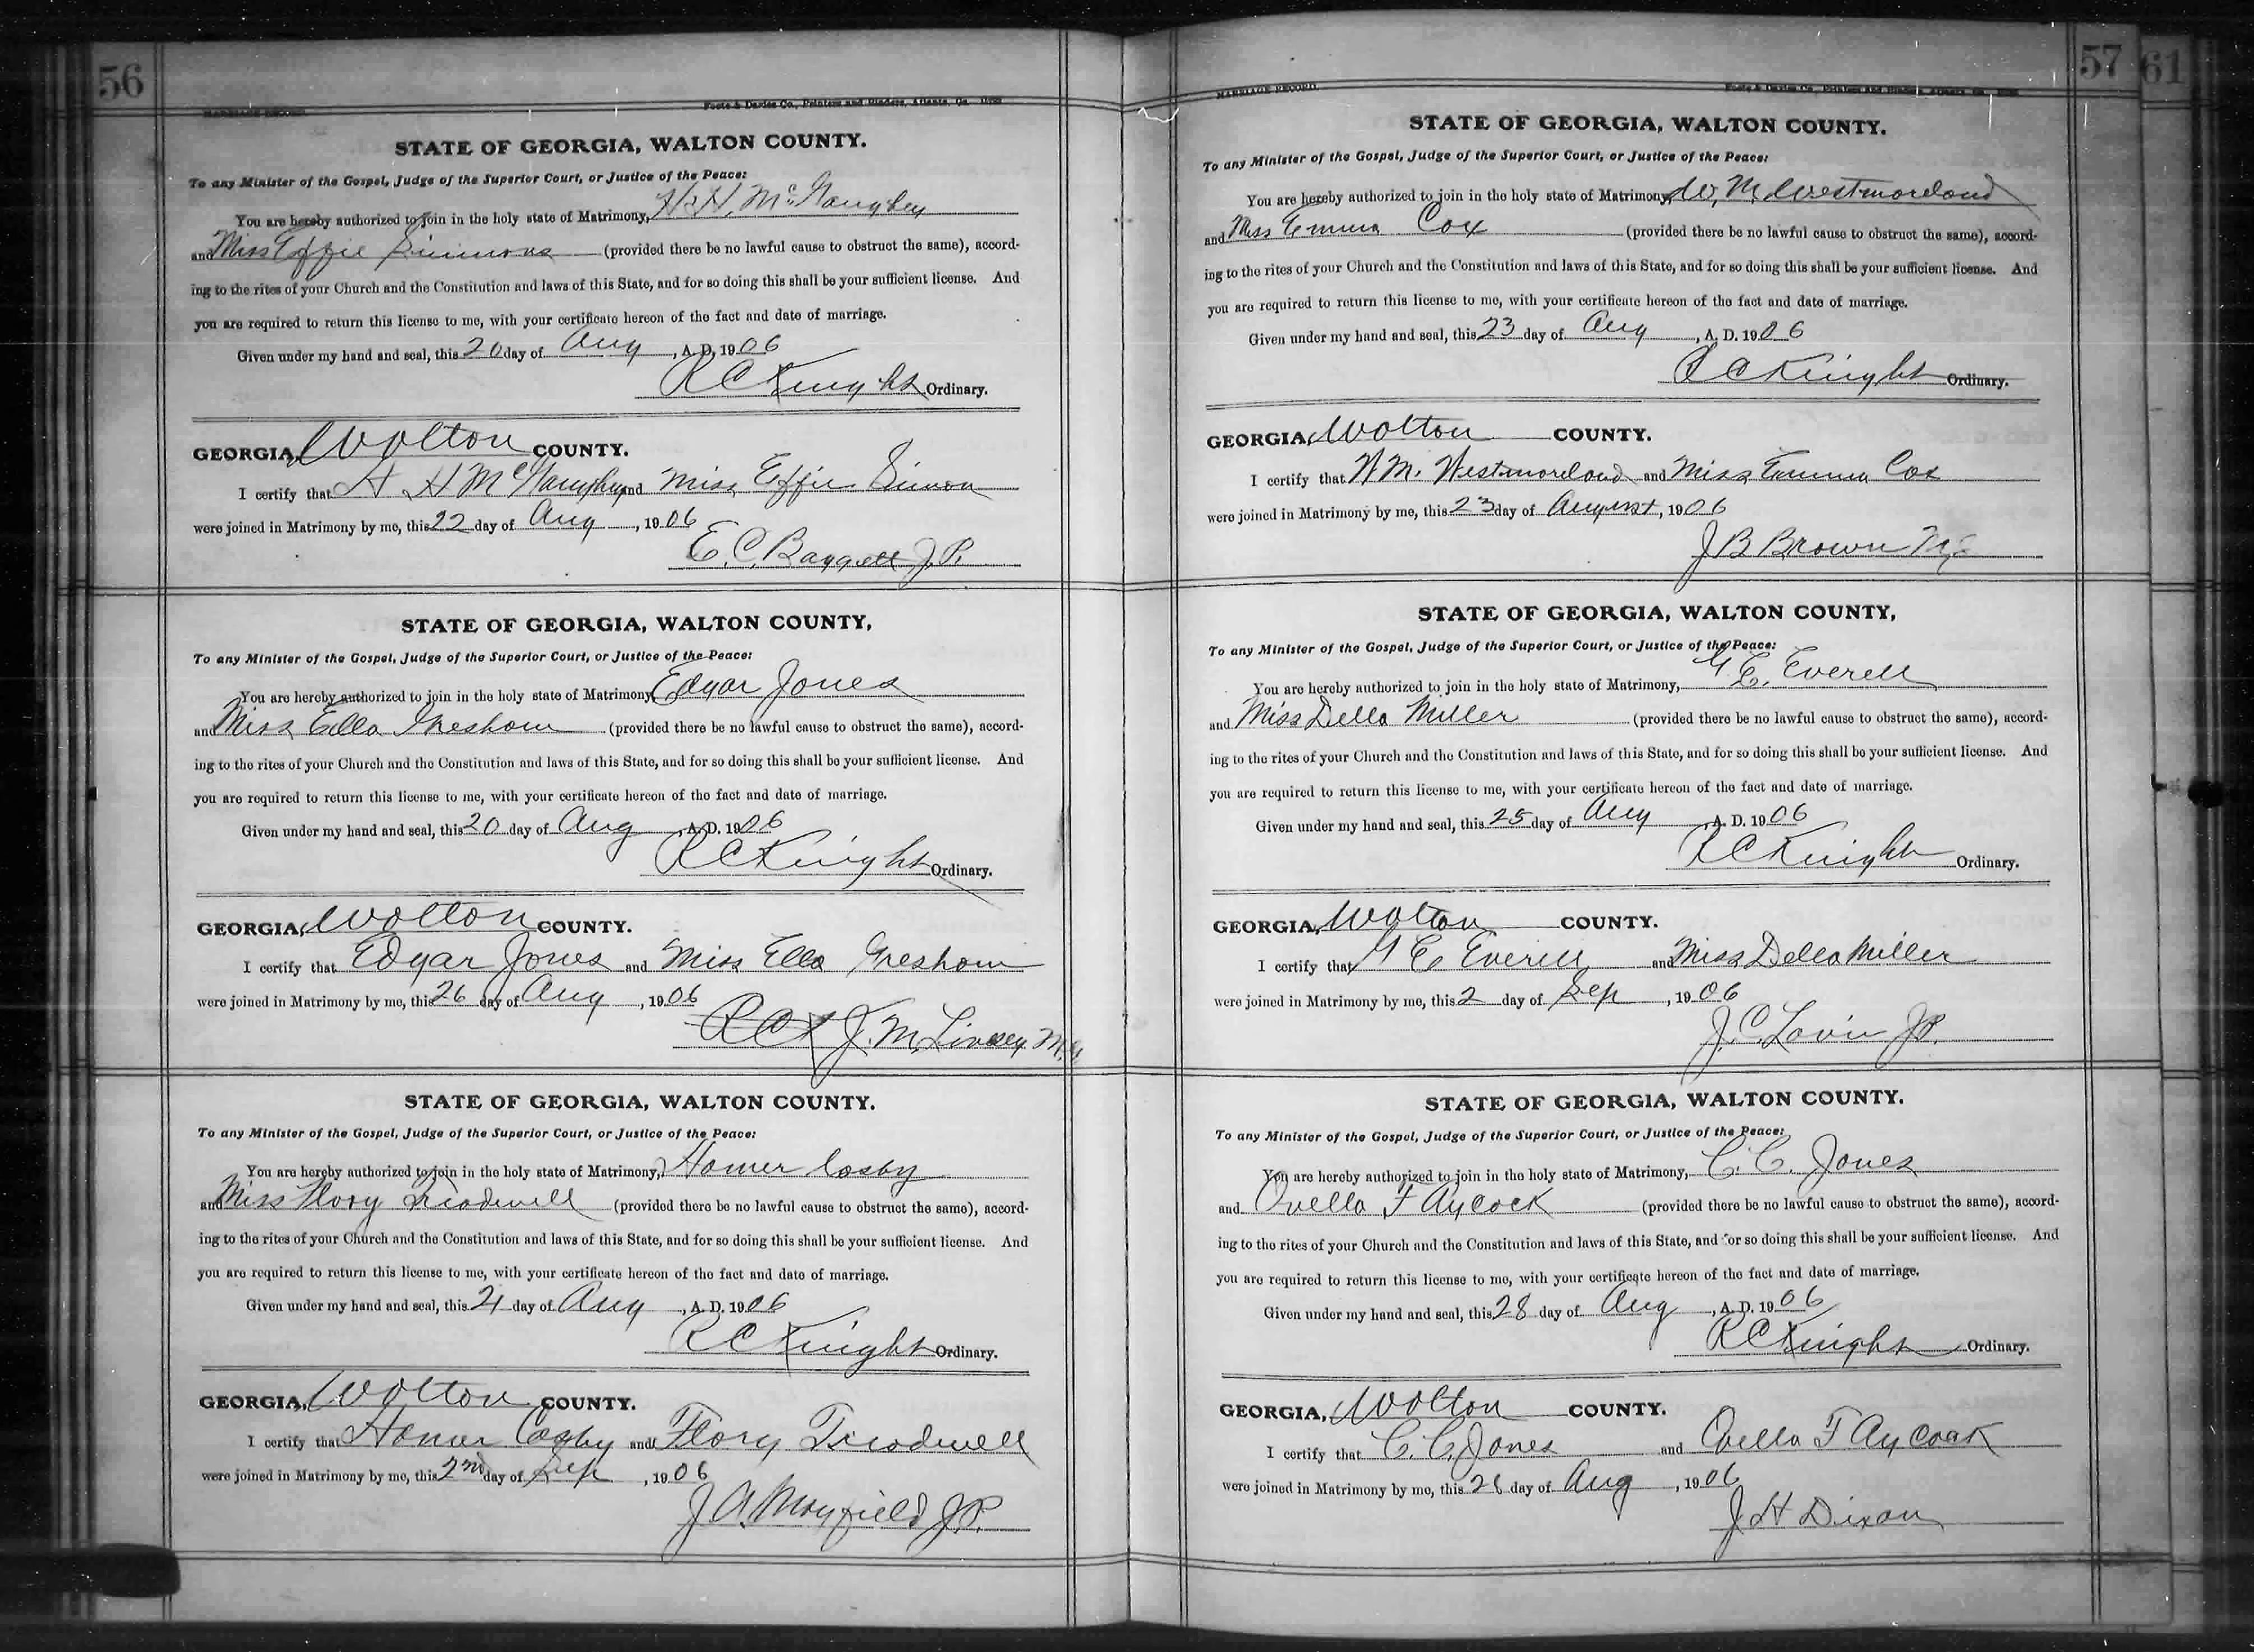 56
MARRIAGE RECORD.
Foote & Davies Co., Printers and Binders, Atlanta, Ga.
STATE OF GEORGIA, WALTON COUNTY.
To any Minister of the Gospel, Judge of the Superior Court, or Justice of the Peace:
You are hereby authorized to join in the holy state of Matrimony, H. H. McGaughey
and Miss Effie Simmons (provided there be no lawful cause to obstruct the same), accord-
ing to the rites of your Church and the Constitution and laws of this State, and for so doing this shall be your sufficient license. And
you are required to return this license to me, with your certificate hereon of the fact and date of marriage.
Given under my hand and seal, this 20 day of Aug, A. D. 1906
R C Knight Ordinary.
GEORGIA, Walton COUNTY.
I certify that H H McGaughey and Miss Effie Simon
were joined in Matrimony by me, this 22 day of Aug, 1906
E. C. Baggett J. P.
STATE OF GEORGIA, WALTON COUNTY,
To any Minister of the Gospel, Judge of the Superior Court, or Justice of the Peace:
You are hereby authorized to join in the holy state of Matrimony, Edgar Jones
and Miss Ella Gresham (provided there be no lawful cause to obstruct the same), accord-
ing to the rites of your Church and the Constitution and laws of this State, and for so doing this shall be your sufficient license. And
you are required to return this license to me, with your certificate hereon of the fact and date of marriage.
Given under my hand and seal, this 20 day of Aug, A. D. 1906
R C Knight Ordinary.
GEORGIA, Walton COUNTY.
I certify that Edgar Jones and Miss Ella Gresham
were joined in Matrimony by me, this 26 day of Aug, 1906
R C K J. M. Linsey M. G.
STATE OF GEORGIA, WALTON COUNTY.
To any Minister of the Gospel, Judge of the Superior Court, or Justice of the Peace:
You are hereby authorized to join in the holy state of Matrimony, Homer Cosby
and Miss Flory Treadwell (provided there be no lawful cause to obstruct the same), accord-
ing to the rites of your Church and the Constitution and laws of this State, and for so doing this shall be your sufficient license. And
you are required to return this license to me, with your certificate hereon of the fact and date of marriage.
Given under my hand and seal, this 21 day of Aug, A. D. 1906
R C Knight Ordinary.
GEORGIA, Walton COUNTY.
I certify that Homer Cosby and Flory Treadwell
were joined in Matrimony by me, this 2nd day of Sep, 1906
J. A. Mayfield J. P.
57 61
MARRIAGE RECORD.
Foote & Davies Co., Printers and Binders, Atlanta, Ga.
STATE OF GEORGIA, WALTON COUNTY.
To any Minister of the Gospel, Judge of the Superior Court, or Justice of the Peace:
You are hereby authorized to join in the holy state of Matrimony, W. M. Westmoreland
and Miss Emma Cox (provided there be no lawful cause to obstruct the same), accord-
ing to the rites of your Church and the Constitution and laws of this State, and for so doing this shall be your sufficient license. And
you are required to return this license to me, with your certificate hereon of the fact and date of marriage.
Given under my hand and seal, this 23 day of Aug, A. D. 1906
R C Knight Ordinary.
GEORGIA, Walton COUNTY.
I certify that W. M. Westmoreland and Miss Emma Cox
were joined in Matrimony by me, this 23 day of August, 1906
J B Brown M. G.
STATE OF GEORGIA, WALTON COUNTY,
To any Minister of the Gospel, Judge of the Superior Court, or Justice of the Peace:
You are hereby authorized to join in the holy state of Matrimony, G E. Everell
and Miss Della Miller (provided there be no lawful cause to obstruct the same), accord-
ing to the rites of your Church and the Constitution and laws of this State, and for so doing this shall be your sufficient license. And
you are required to return this license to me, with your certificate hereon of the fact and date of marriage.
Given under my hand and seal, this 25 day of Aug, A. D. 1906
R C Knight Ordinary.
GEORGIA, Walton COUNTY.
I certify that G E Everell and Miss Della Miller
were joined in Matrimony by me, this 2 day of Sep, 1906
J. C. J. P.
STATE OF GEORGIA, WALTON COUNTY.
To any Minister of the Gospel, Judge of the Superior Court, or Justice of the Peace:
You are hereby authorized to join in the holy state of Matrimony, C. C. Jones
and Ovella F Aycock (provided there be no lawful cause to obstruct the same), accord-
ing to the rites of your Church and the Constitution and laws of this State, and for so doing this shall be your sufficient license. And
you are required to return this license to me, with your certificate hereon of the fact and date of marriage.
Given under my hand and seal, this 28 day of Aug, A. D. 1906
R C Knight Ordinary.
GEORGIA, Walton COUNTY.
I certify that C. C. Jones and Ovella F Aycock
were joined in Matrimony by me, this 28 day of Aug, 1906
J. H Dixon